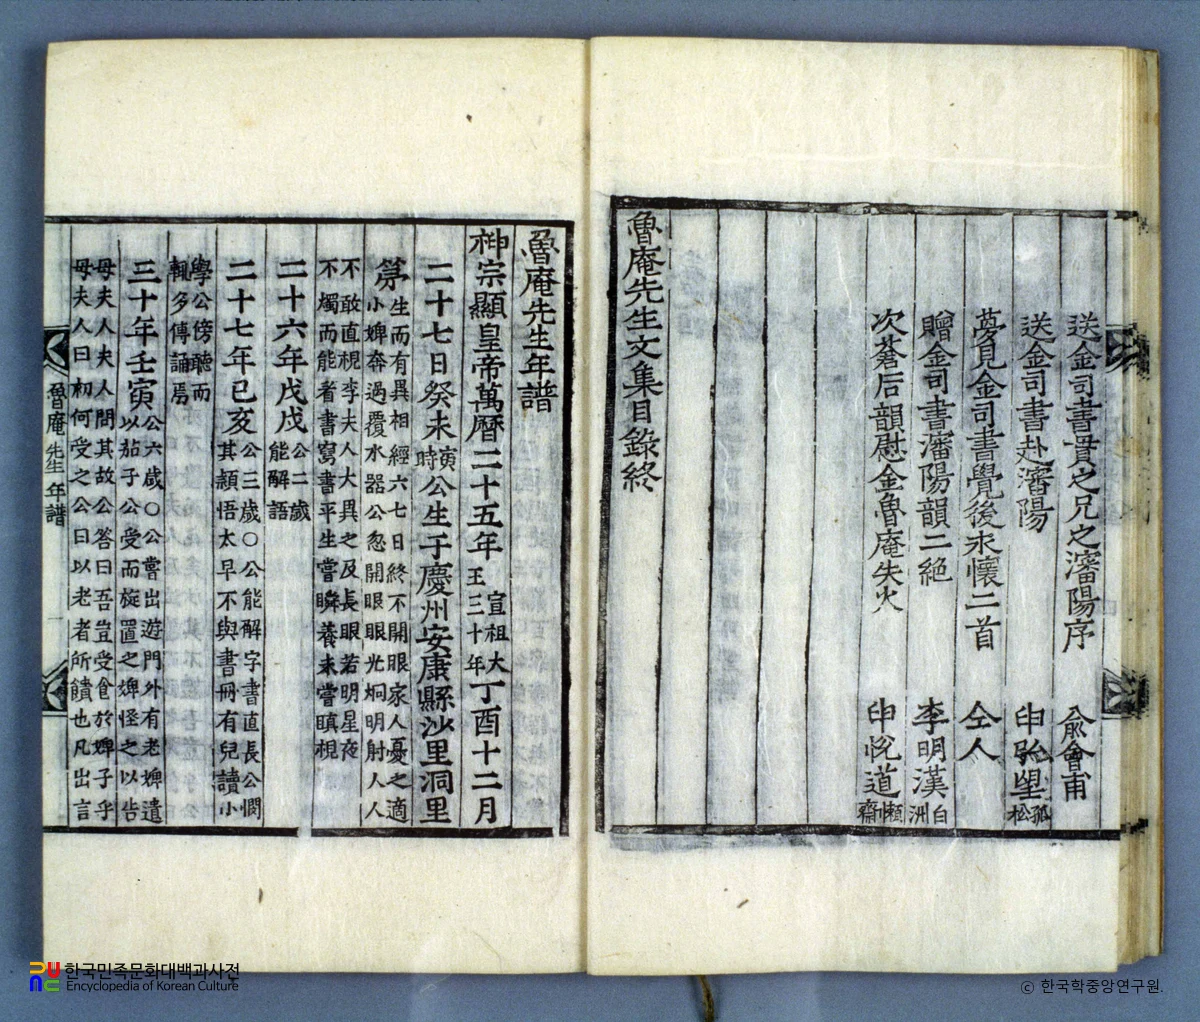 送金司書貫之兄之瀋陽序 兪會甫
送金司書赴瀋陽 申弘望 孤松
夢見金司書覺後永懷二首 仝人
贈金司書瀋陽韻二絶 李明漢 白洲
次蒼后韻慰金魯庵失火 申悅道 懶齋
魯庵先生文集目錄終
魯庵先生年譜
神宗顯皇帝萬曆二十五年 宣祖大王三十年 丁酉十二月
二十七日癸未 寅時 公生于慶州安康縣沙里洞里
第 生而有異相經六七日終不開眼家人憂之適
小婢奔過覆水器公忽開眼眼光烱明射人人
不敢直視李夫人大異之及長眼若明星夜
不燭而能看書寫書平生嘗瞬養未嘗瞋視
二十六年戊戌 公二歲能解語
二十七年己亥 公三歲〇公能解字書直長公憫
其穎悟太早不與書冊有兒讀小
學公傍聽而
輒多傳誦焉
三十年壬寅 公六歲〇公嘗出遊門外有老婢遺
以茄子公受而旋置之婢怪之以告
母夫人夫人問其故公答曰吾豈受食於婢子乎
母夫人曰初何受之公曰以老者所饋也凡出言
魯庵先生年譜 一
한국민족문화대백과사전
Encyclopedia of Korean Culture
ⓒ 한국학중앙연구원.